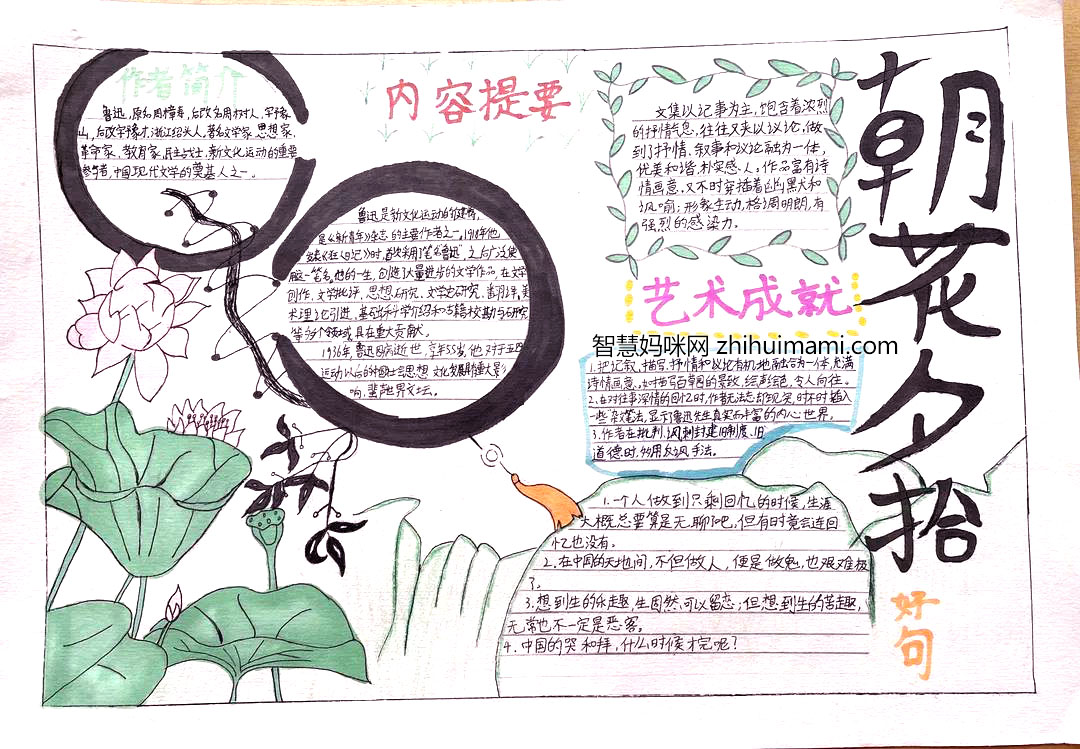 朝花夕拾
作者简介
鲁迅，原名周樟寿，后改名周树人，字豫
山，后改字豫才，浙江绍兴人，著名文学家、思想家、
革命家、教育家、民主战士，新文化运动的重要
参与者，中国现代文学的奠基人之一。
内容提要
鲁迅是新文化运动的健将，
是《新青年》杂志的主要作者之一，1918年他
发表《狂人日记》时，首次采用笔名"鲁迅"，之后广泛使
用这一笔名。他的一生，创造了大量进步的文学作品，在文学
创作、文学批评、思想研究、文学史研究、翻译、美
术理论引进、基础科学介绍和古籍校勘与研究
等多个领域具在重大贡献。
1936年鲁迅因病逝世，享年55岁，他对于五四
运动以后的中国社会思想文化发展有重大影
响，蜚声世界文坛。
文集以记事为主，饱含着浓烈
的抒情气息，往往又夹以议论，做
到了抒情、叙事和议论融为一体，
优美和谐，朴实感人。作品富有诗
情画意，又不时穿插着幽默和
讽喻；形象生动，格调明朗，有
强烈的感染力。
艺术成就
智慧妈咪网 zhihuimami.com
1.把记叙、描写、抒情和议论有机地融合为一体，充满
诗情画意。如描写百草园的景致，绘声绘色，令人向往。
2.在对往事深情的回忆时，作者无法忘却现实，时不时插入
一些杂笔法，显示了鲁迅先生真实而丰富的内心世界。
3.作者在批判、讽刺封建旧制度、旧
道德时，多用反讽手法。
1.一个人做到只剩回忆的时候，生涯
大概总要算是无聊了吧，但有时竟会连回
忆也没有。
2.在中国的天地间，不但做人，便是做鬼，也艰难极
了。
3.想到生的乐趣，生固然可以留恋；但想到生的苦趣，
无常也不一定是恶客。
4.中国的哭和拜，什么时候才完呢？
好句